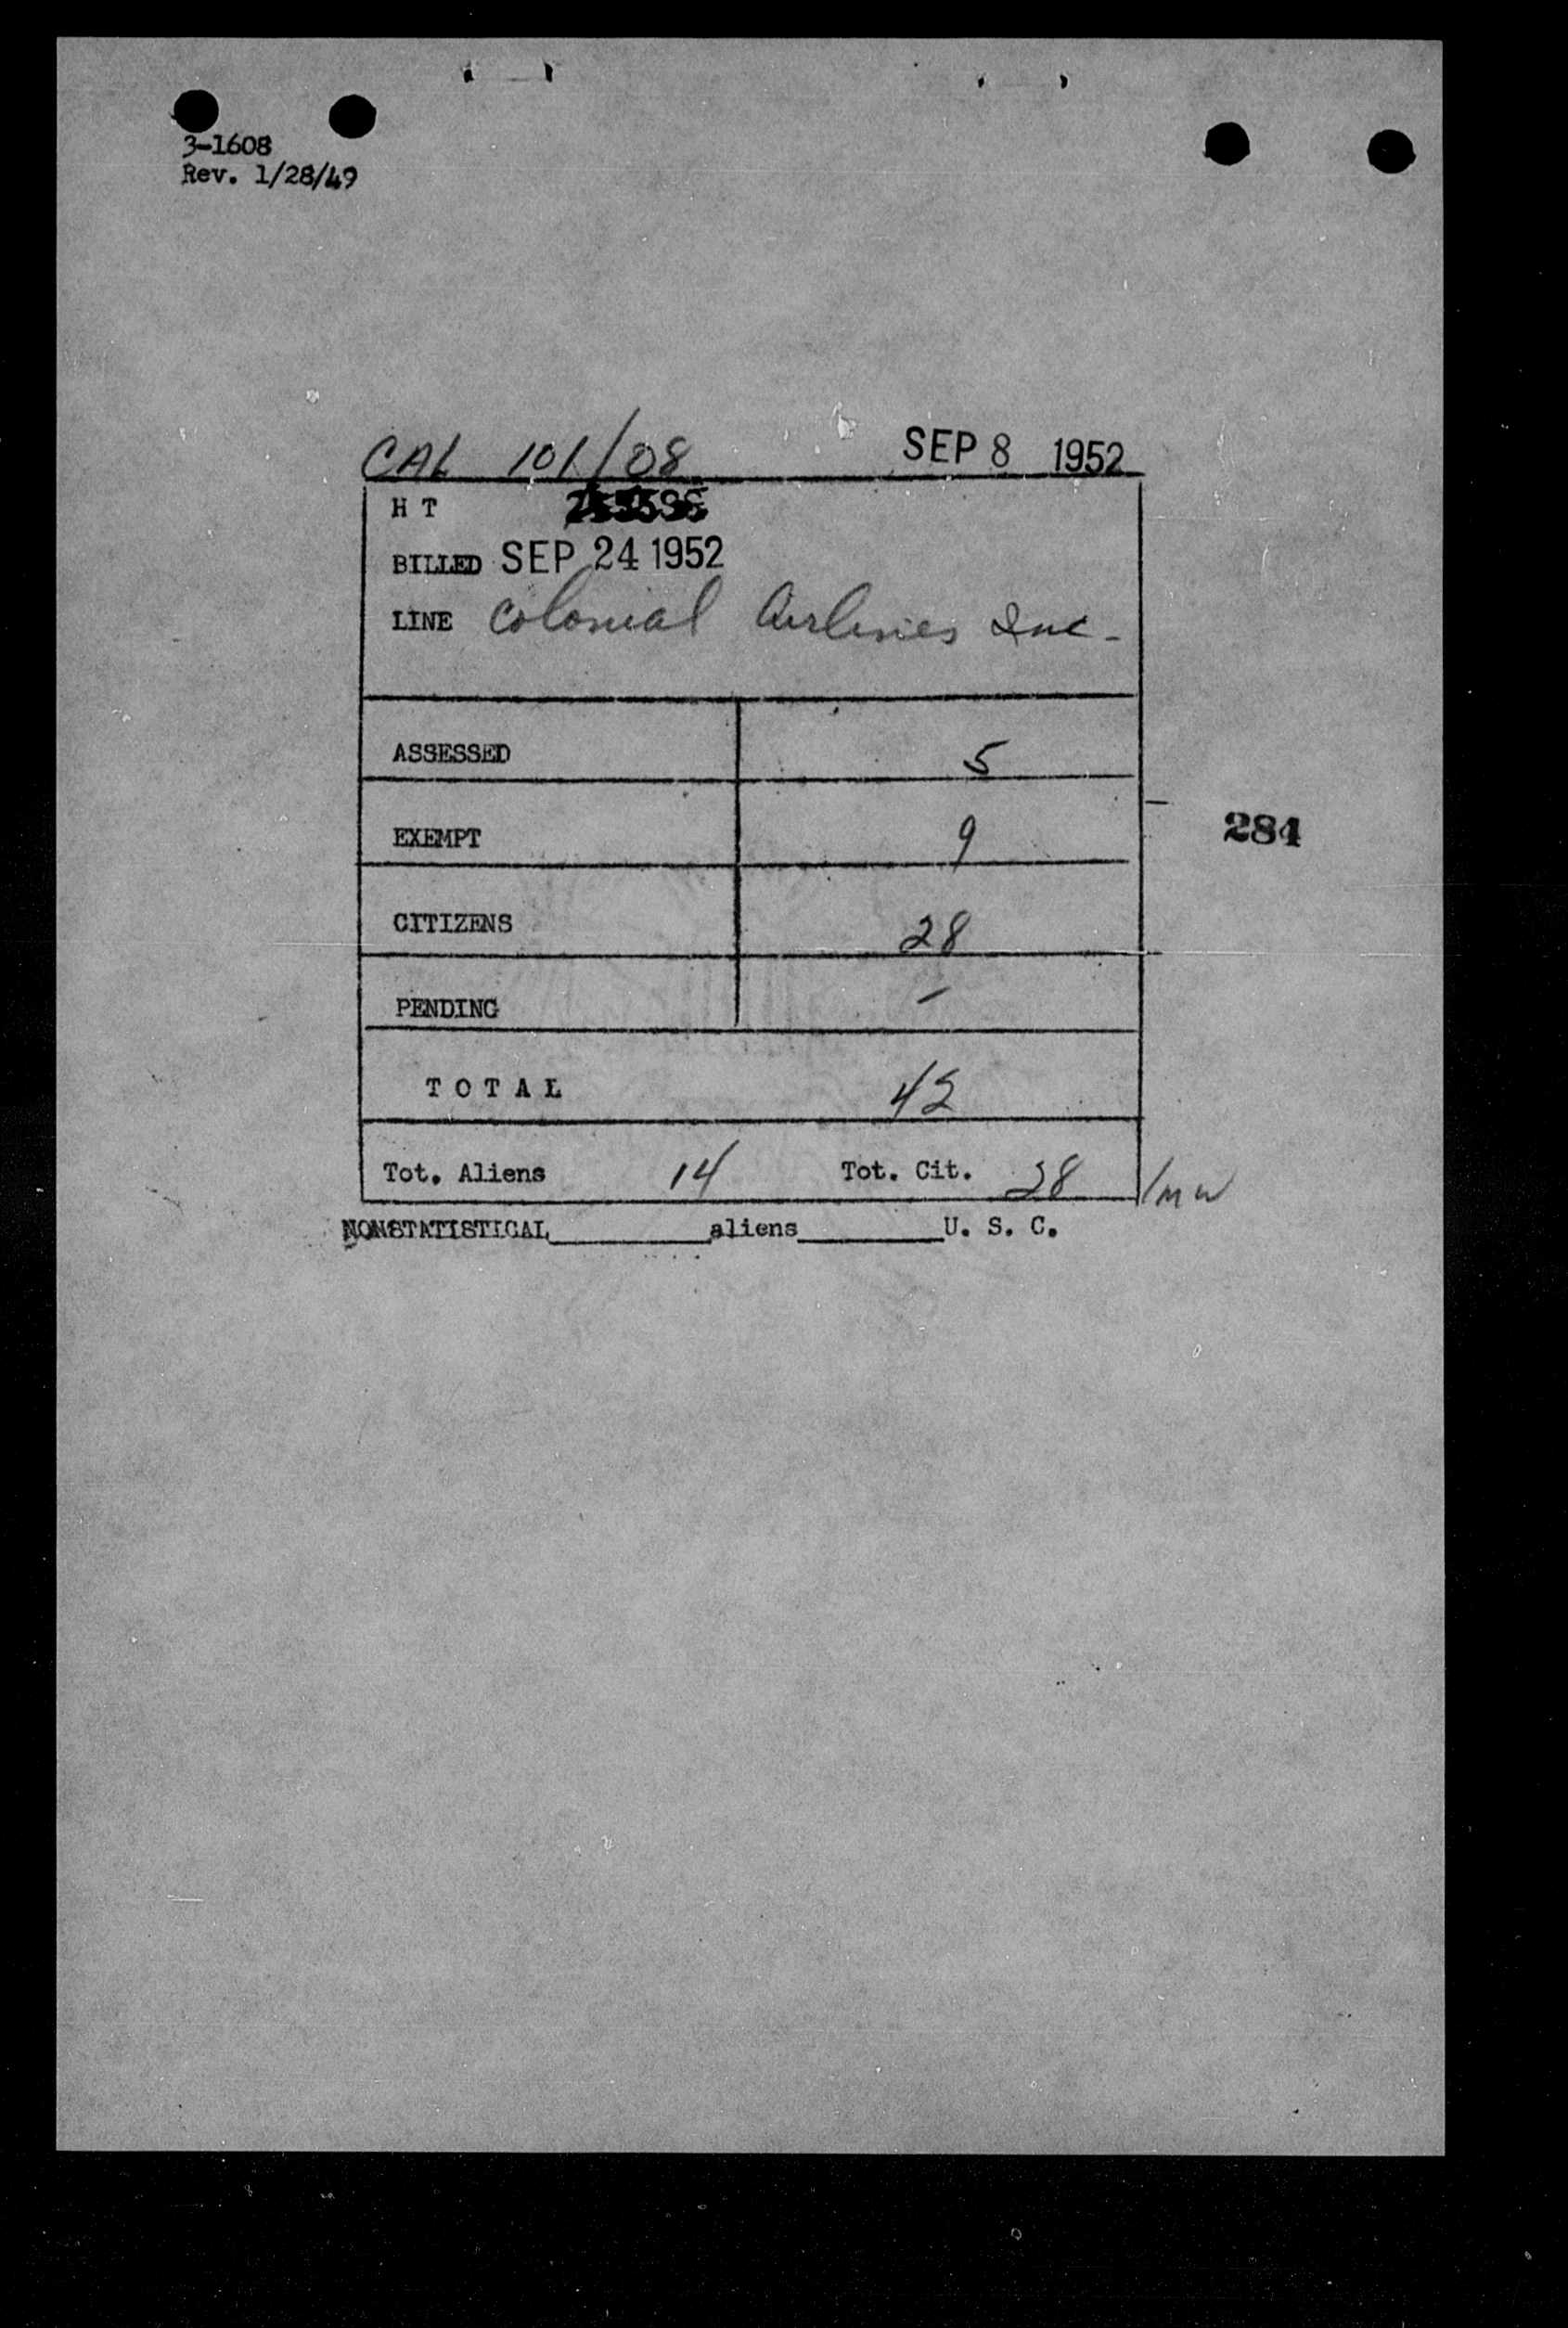 3-1608
Rev. 1/28/49
CAL 101/08 SEP 8 1952
H T
BILLED SEP 24 1952
LINE Colonial Airlines Inc.
ASSESSED 5
EXEMPT 9
284
CITIZENS 28
PENDING –
TOTAL 42
Tot. Aliens 14 Tot. Cit. 28 /mw
NONSTATISTICAL________aliens________U. S. C.